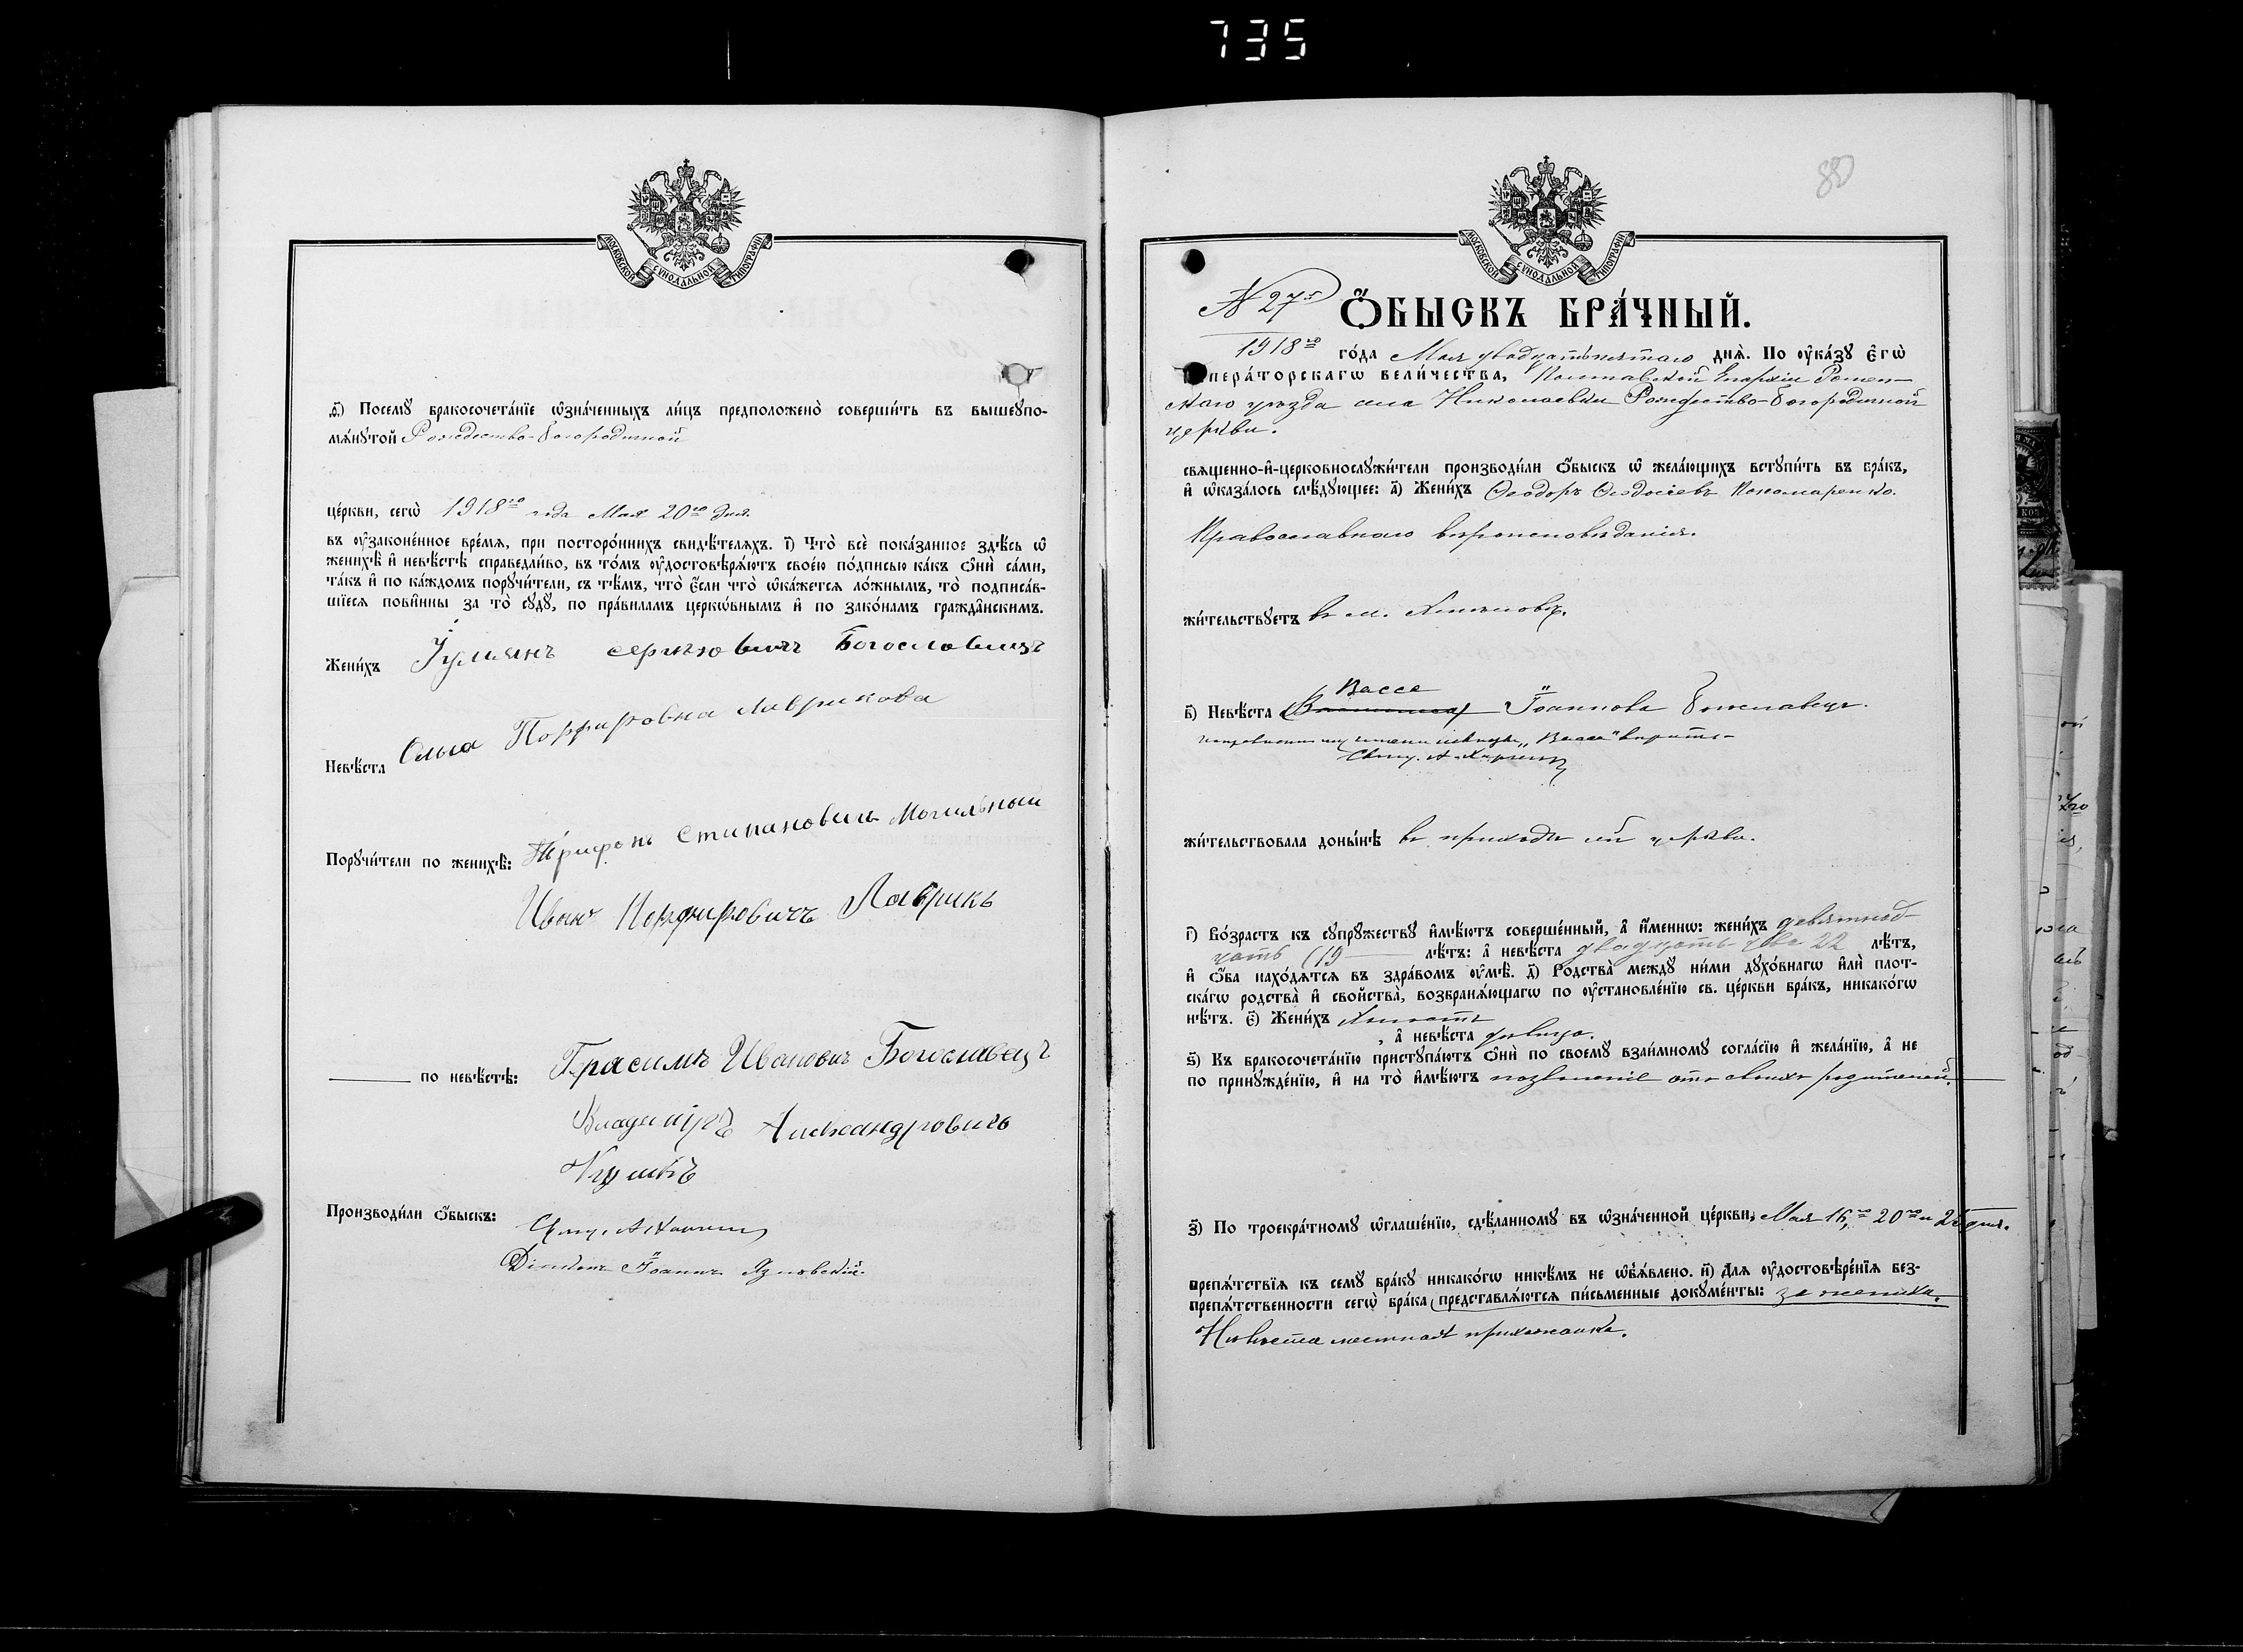 735
МОСКОВСКОЙ СѴНОДАЛЬНОЙ ТИПОГРАФІИ
ѳ҃) Посемꙋ̀ бракосочета́нїе ѡ҆зна́ченныхъ ли́цъ предположено̀ соверши́ть въ вышеꙋпо-
мѧ́нꙋтой Рождество-Богородичной
це́ркви, сегѡ̀ 1918го года Мая 20го дня
въ ᲂу҆законе́нное вре́мѧ, при посторо́ннихъ свидѣ́телѧхъ. і҃) Что̀ всѐ пока́занное здѣ́сь ѡ҆
женихѣ̀ и҆ невѣ́стѣ справедли́во, въ то́мъ ᲂу҆достовѣрѧ́ютъ свое́ю по́дписью ка́къ ѻ҆нѝ са́ми,
та́къ и҆ по ка́ждомъ порꙋчи́тели, съ тѣ́мъ, что̀ є҆́сли что̀ ѡ҆ка́жетсѧ ло́жнымъ, то̀ подписа́в-
шїесѧ пови́нны за то̀ сꙋдꙋ̀, по пра́виламъ церкѡ́внымъ и҆ по зако́намъ гражда̑нскимъ.
Жени́хъ Іулиянъ сергіовичъ Богославицъ
Невѣ́ста Ольга Порфировна Лаврикова
Порꙋчи́тели по женихѣ̀: Трифонъ Стипановичь Могильный
Иванъ Порфировичъ Лаврикъ
по невѣ́стѣ: Герасимъ Ивановичъ Богославецъ
Владиміръ Александровичъ
Производи́ли ѻ҆́быскъ: Свящ. А.
Діаконъ Іоаннъ Язловскій.
80
МОСКОВСКОЙ СѴНОДАЛЬНОЙ ТИПОГРАФІИ
N 27
Ѻ҆́БЫСКЪ БРА́ЧНЫЙ.
1918го го́да Мая двадцатьпятаго днѧ̀. По ᲂу҆ка́зꙋ є҆гѡ̀
и҆мпера́торскагѡ вели́чества, Полтавской Епархіи Ромен-
скаго уѣзда села Николаевки Рождество-Богородичной
церкви.
свѧщенно-и҆-церковнослꙋжи́тели производи́ли ѻ҆́быскъ ѡ҆ жела́ющихъ встꙋпи́ть въ бра́къ,
и҆ ѡ҆каза́лось слѣ́дꙋющее: а҃) Жени́хъ Ѳеодоръ Ѳеодосіевъ Пономаренко.
Православнаго вѣроисповѣданія.
жи́тельствꙋетъ в м.
Васса
в҃) Невѣ́ста Іоаннова Богославецъ.
имени невѣсты „Васса" вѣрить.
Свящ. А.
жи́тельствовала доны́нѣ въ приходѣ сей церкви.
г҃) Во́зрастъ къ сꙋпрꙋ́жествꙋ и҆мѣ́ютъ соверше́нный, а҆ и҆́меннѡ: жени́хъ девятнад-
цать (19 лѣ́тъ: а҆ невѣ́ста двадцать два 22 лѣ́тъ,
и҆ ѻ҆́ба нахо́дѧтсѧ въ здра́вомъ ᲂу҆мѣ̀. д҃) Родства̀ междꙋ̀ ни́ми дꙋхо́внагѡ и҆лѝ плот-
ска́гѡ родства̀ и҆ сво́йства̀, возбранѧ́ющагѡ по ᲂу҆становле́нїю св. це́ркви бра́къ, никако́гѡ
нѣ́тъ. є҃) Жени́хъ холостъ
, а҆ невѣ́ста дѣвица.
ѕ҃) Къ бракосочета́нїю пристꙋпа́ютъ ѻ҆нѝ по своемꙋ̀ взаи́мномꙋ согла́сїю и҆ жела́нїю, а҆ не
по принꙋжде́нїю, и҆ на то̀ и҆мѣ́ютъ позволеніе отъ своихъ родителей.
з҃) По троекра́тномꙋ ѡ҆глаше́нїю, сдѣ́ланномꙋ въ ѡ҆зна́ченной це́ркви, Мая 16го, 20го и дня.
препѧ́тствїѧ къ семꙋ̀ бра́кꙋ никако́гѡ никѣ́мъ не ѡ҆б̾ѧ́влено. и҃) Длѧ ᲂу҆достовѣре́нїѧ без-
препѧ́тственности сегѡ̀ бра́ка (представлѧ́ютсѧ пи́сьменные докꙋме́нты: за жениха.
Невѣста мѣстная прихожанка.